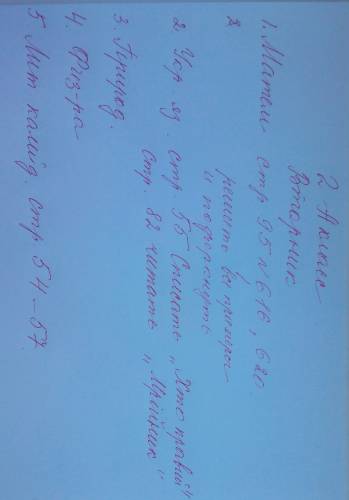 2 А класс
Вторник
1. Матем стр 95 №616, 620
решить все примеры
и подчеркнуть
2. Укр. яз. стр. 55 Списать „Хто правий"
стр. 82 читать „Мрійник"
3. Природ.
4. Физ-ра
5. Лит калейд. стр 54-57.